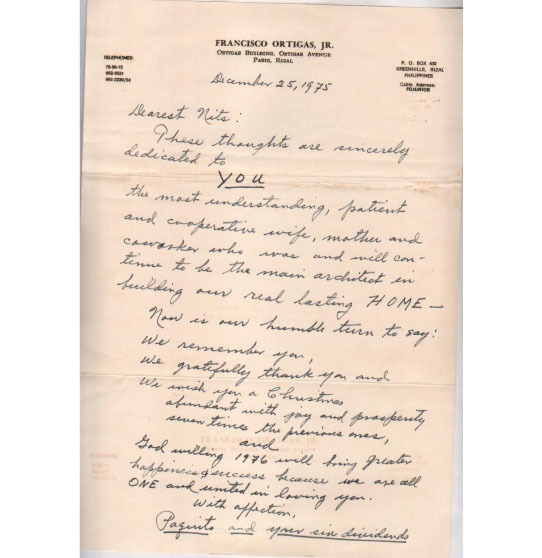 FRANCISCO ORTIGAS, JR.
ORTIGAS BUILDING, ORTIGAS AVENUE
PASIG, RIZAL
TELEPHONES:
P. O. BOX 450
GREENHILLS, RIZAL
PHILIPPINES
Cable Address:
FOJUNIOR
December 25, 1975
Dearest Nits:
These thoughts are sincerely
dedicated to
YOU
the most understanding, patient
and cooperative wife, mother and
coworker who was and will con-
tinue to be the main architect in
building our real lasting HOME —
Now is our humble turn to say:
We remember you,
We gratefully thank you and
We wish you a Christmas
abundant with joy and prosperity
seven times the previous ones,
and
God willing 1976 will bring greater
happiness & success because we are all
ONE and united in loving you.
With affection,
Paquito and your six dividends